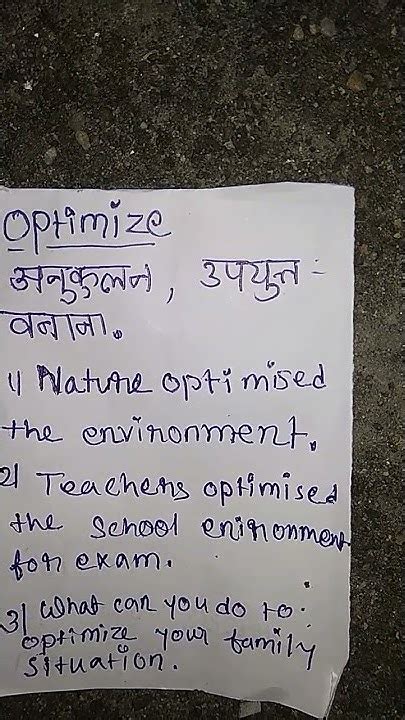 Optimize
अनुकुलन, उपयुक्त
बनाना.
1) Nature optimised
the environment.
2) Teachers optimised
the school enironment
for exam.
3) What can you do to
optimize your family
situation.